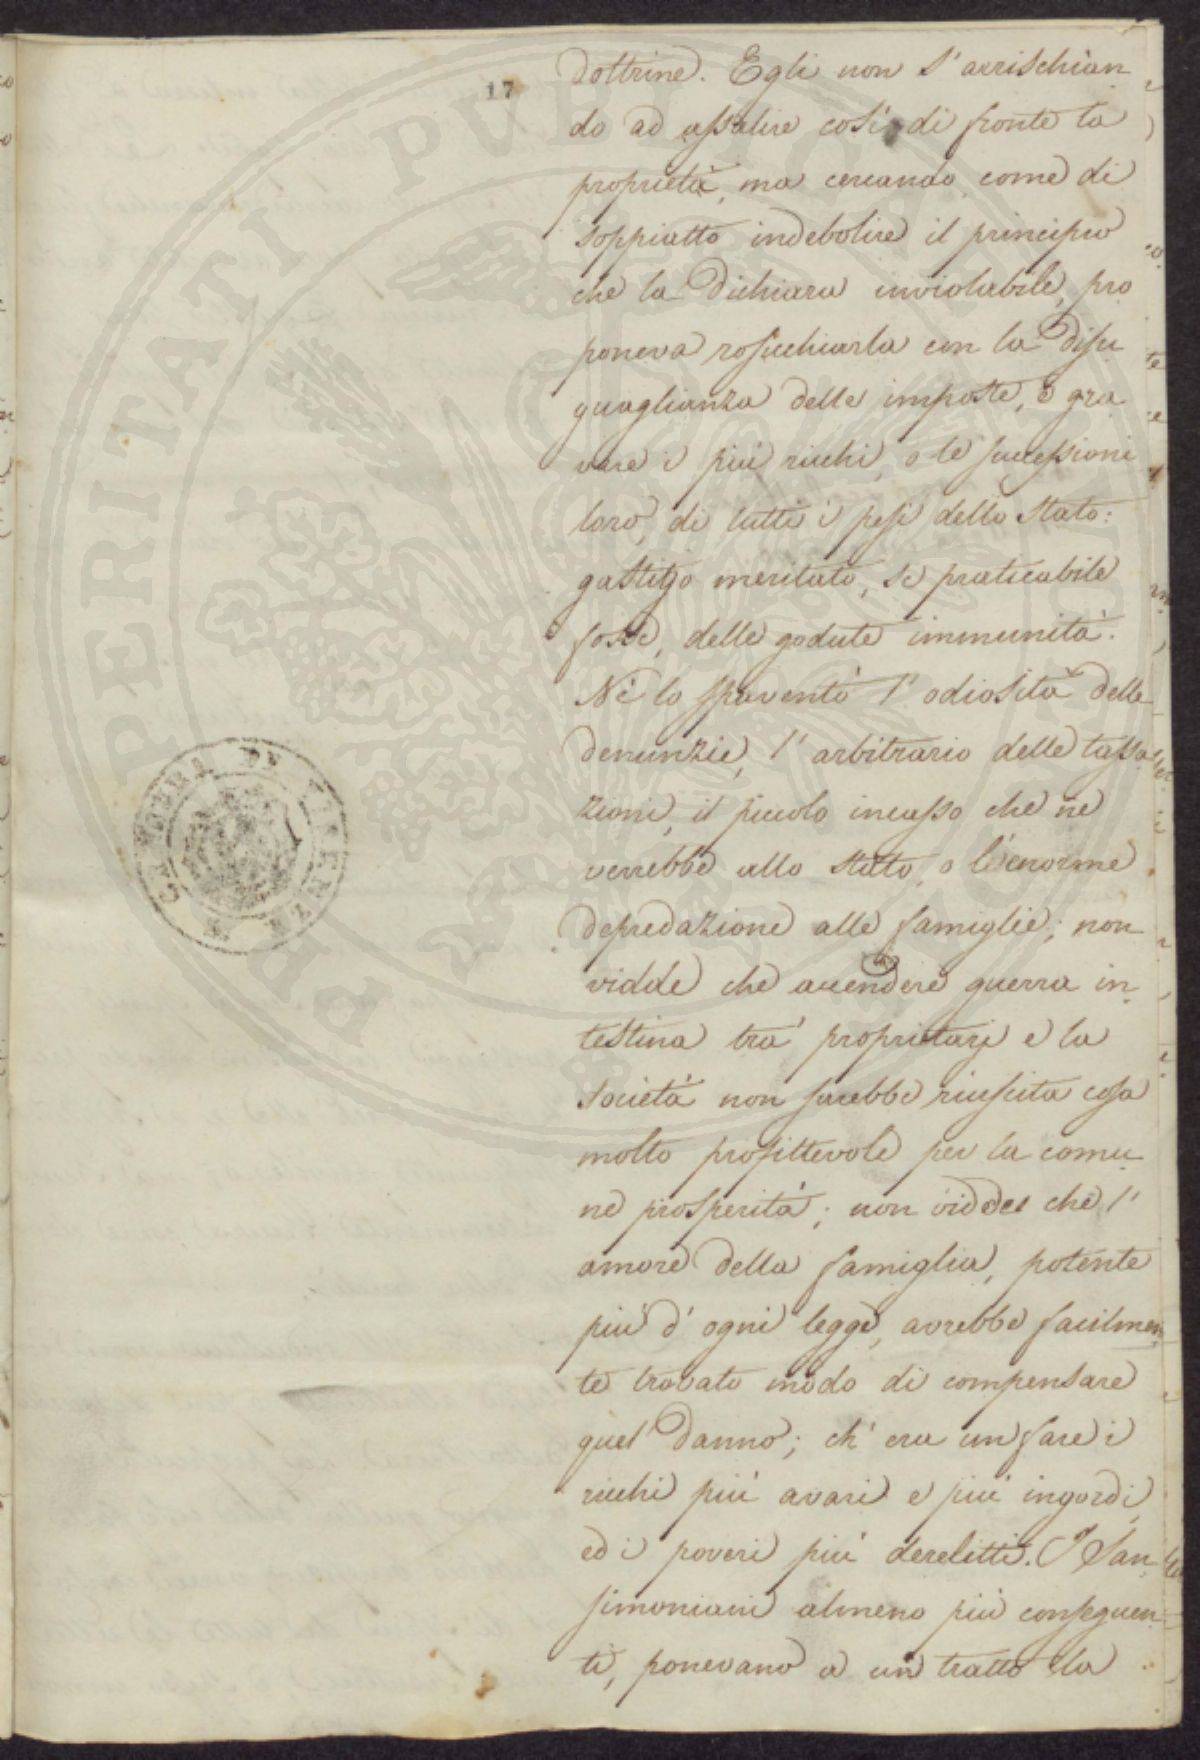 17
dottrine. Egli non s'arrischian
do ad assalire così di fronte la
proprietà, ma cercando come di
soppiatto indebolire il principio
che la dichiara inviolabile, pro
poneva rosicchiarla con la disu
guaglianza delle imposte, e gra
vare i più ricchi, o le successioni
loro, di tutti i pesi dello Stato:
gastigo meritato, se praticabile
fosse, delle godute immunità.
Nè lo spaventò l'odiosità delle
denunzie, l'arbitrario delle tassa
zioni, il piccolo incasso che ne
verrebbe allo Stato, o l'enorme
depredazione alle famiglie; non
vidde che accendere guerra in
testina tra' proprietarj e la
società non sarebbe riuscita cosa
molto profittevole per la comu
ne prosperità; non vidde che l'
amore della famiglia, potente
più d'ogni legge, avrebbe facilmen
te trovato modo di compensare
quel danno; ch'era un fare i
ricchi più avari e più ingordi,
ed i poveri più derelitti. I San
simoniani almeno più conseguen
ti, ponevano a un tratto la
CAMERA DI FIRENZE
PERITATI PVBLICAE